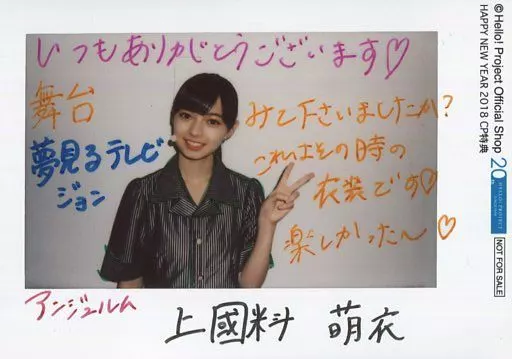 いつもありがとうございます♡
舞台
夢見るテレビ
ジョン
みて下さいましたか?
これはその時の
衣装です♡
楽しかった〜♡
アンジュルム
上國料 萌衣
© Hello! Project Official Shop
HAPPY NEW YEAR 2018 CP特典
20th
HELLO! PROJECT
NOT FOR SALE